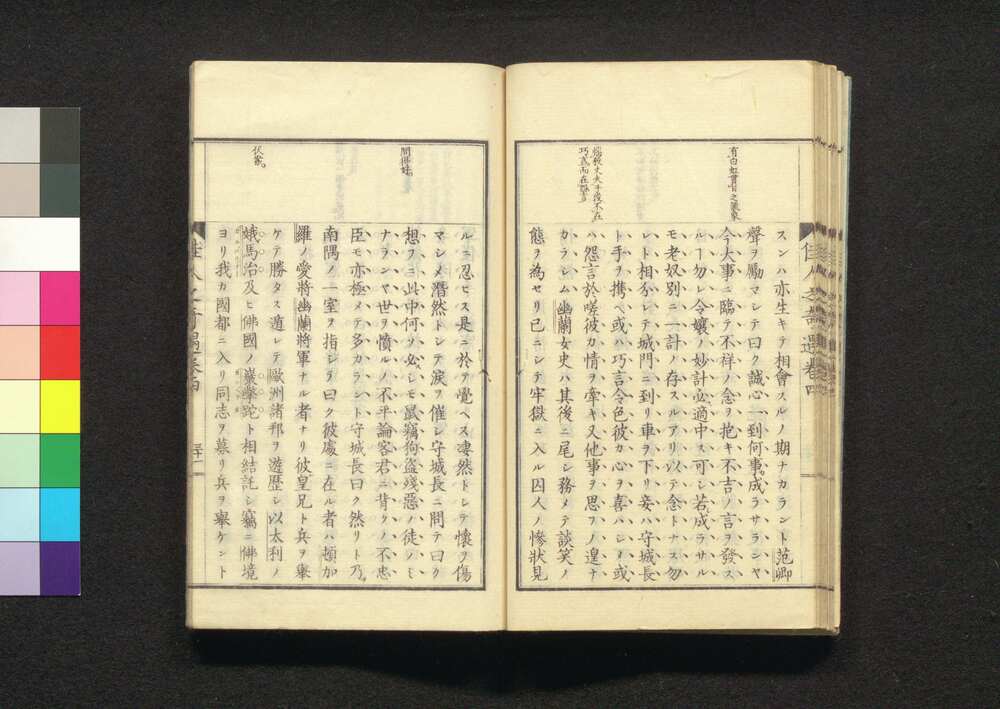 有白虹貫日之氣象
スンハ亦生キテ相會スルノ期ナカラント范卿
聲ヲ勵マシテ曰ク誠心一到何事カ成ラサランヤ
今大事ニ臨テ不祥ノ念ヲ抱キ不吉ノ言ヲ發ス
ルヿ勿レ令孃ノ妙計必適中ス可シ若成ラサル
モ老奴別ニ一計ノ存スルアリ以テ念トナス勿
レト相分レテ城門ニ到リ車ヲ下リ妾ハ守城長
ト手ヲ携ヘ或ハ巧言令色彼カ心ヲ喜ハシメ或
ハ怨言於嗟彼カ情ヲ牽キ又他事ヲ思フノ遑ナ
カラシム幽蘭女史ハ其後ニ尾シ務メテ談笑ノ
態ヲ為セリ已ニシテ牢獄ニ入ル囚人ノ慘狀見
佳人之奇遇卷四
問得妙
伏案
ルニ忍ヒス是ニ於テ覺ヘス凄然トシテ懷ヲ傷
マシメ潛然トシテ涙ヲ催シ守城長ニ問テ曰ク
想フニ此中何ソ必シモ鼠竊狗盜殘惡ノ徒ノミ
ナランヤ世ヲ憤ルノ不平論客君ニ背クノ不忠
臣モ亦極メテ多カラント守城長曰ク然リト乃
南隅ノ一室ヲ指シテ曰ク彼處ニ在ル者ハ頓加
羅ノ愛將幽蘭將軍ナル者ナリ彼皇兄ト兵ヲ擧
ケテ勝タス遁レテ歐洲諸邦ヲ遊歷シ以太利ノ
娥馬治及ヒ佛國ノ巖學陀ト相結託シ竊ニ佛境
ヨリ我カ國都ニ入リ同志ヲ募リ兵ヲ擧ケント
佳人之奇遇卷四